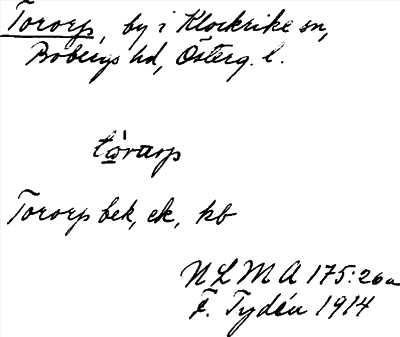 Tororp, by i Klockrike sn,
Bobergs hd, Österg. l.
tòrarp
Tororp bek, ek, kb
N L M A 175:26a
F. Tydén 1914